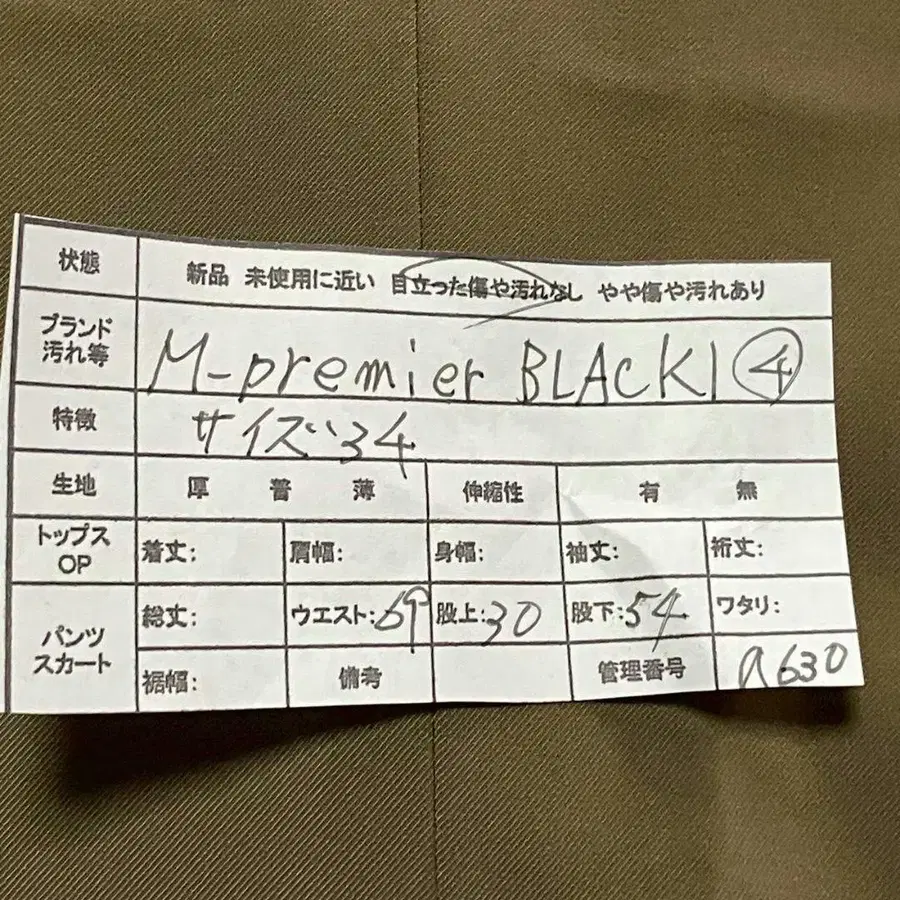 状態 新品 未使用に近い 目立った傷や汚れなし やや傷や汚れあり
ブランド
汚れ等 M-premier BLACK ④
特徴 サイズ34
生地 厚 普 薄 伸縮性 有 無
トップス
OP 着丈: 肩幅: 身幅: 袖丈: 裄丈:
パンツ
スカート 総丈: ウエスト:69 股上:30 股下:54 ワタリ:
裾幅: 備考 管理番号 a630